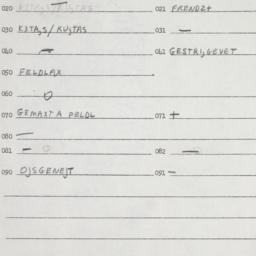 020 — 021 FRENDZ4
030 KITAJS/KUJTAS 031 —
040 — 041 GESTRIJGEVET
050 FELDLAX
060 O
070 GEMAXTA PELDL 071 +
080 —
081 — 082 —
090 OJSGENEJT 091 —